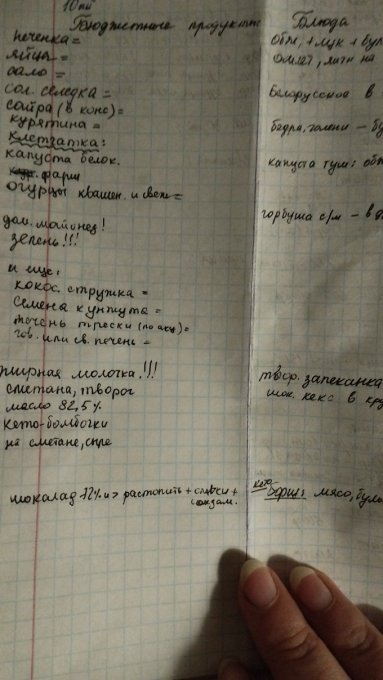 Бюджетные продукты
Блюда
печенка =
яйца =
сало =
сол. селедка =
сайра (в конс) =
курятина =
клетчатка:
капуста белок.
фарш
огурцы квашен. и свеж =
дом. майонез!
зелень!!!
и еще:
кокос. стружка =
семена кунжута =
печень трески (по акц) =
гов. или св. печень =
жирная молочка!!!
сметана, творог
масло 82,5%
кето-бомбочки
на сметане,
шоколад => растопить + сливки +
сахзам.
обж. + лук +
омлет, яичн на
Белорусское в
бедра, голени –
капуста туш: обж
горбуша с/м – в
твор. запеканка
шок. кекс в
кето
борщ: мясо,